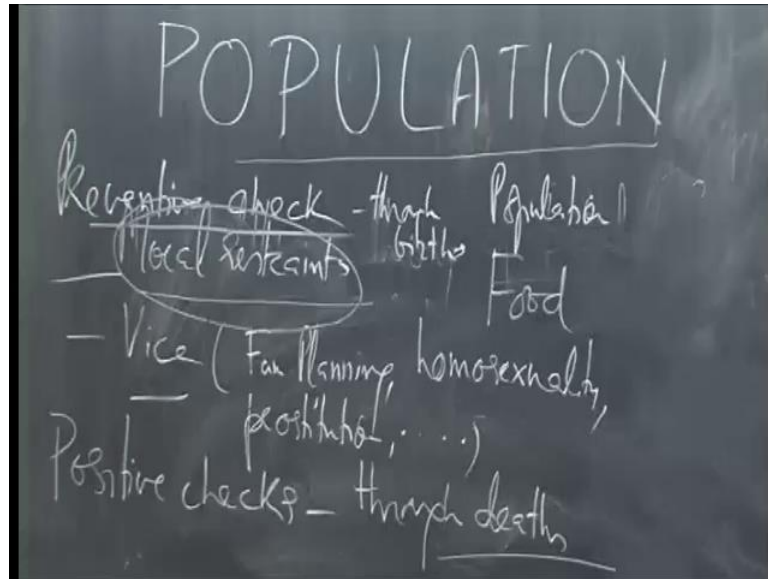 POPULATION
Preventive check - through births
Moral restraints
Population
Food
- Vice ( Fam Planning, homosexuality,
prostitution, .....)
Positive checks - through deaths